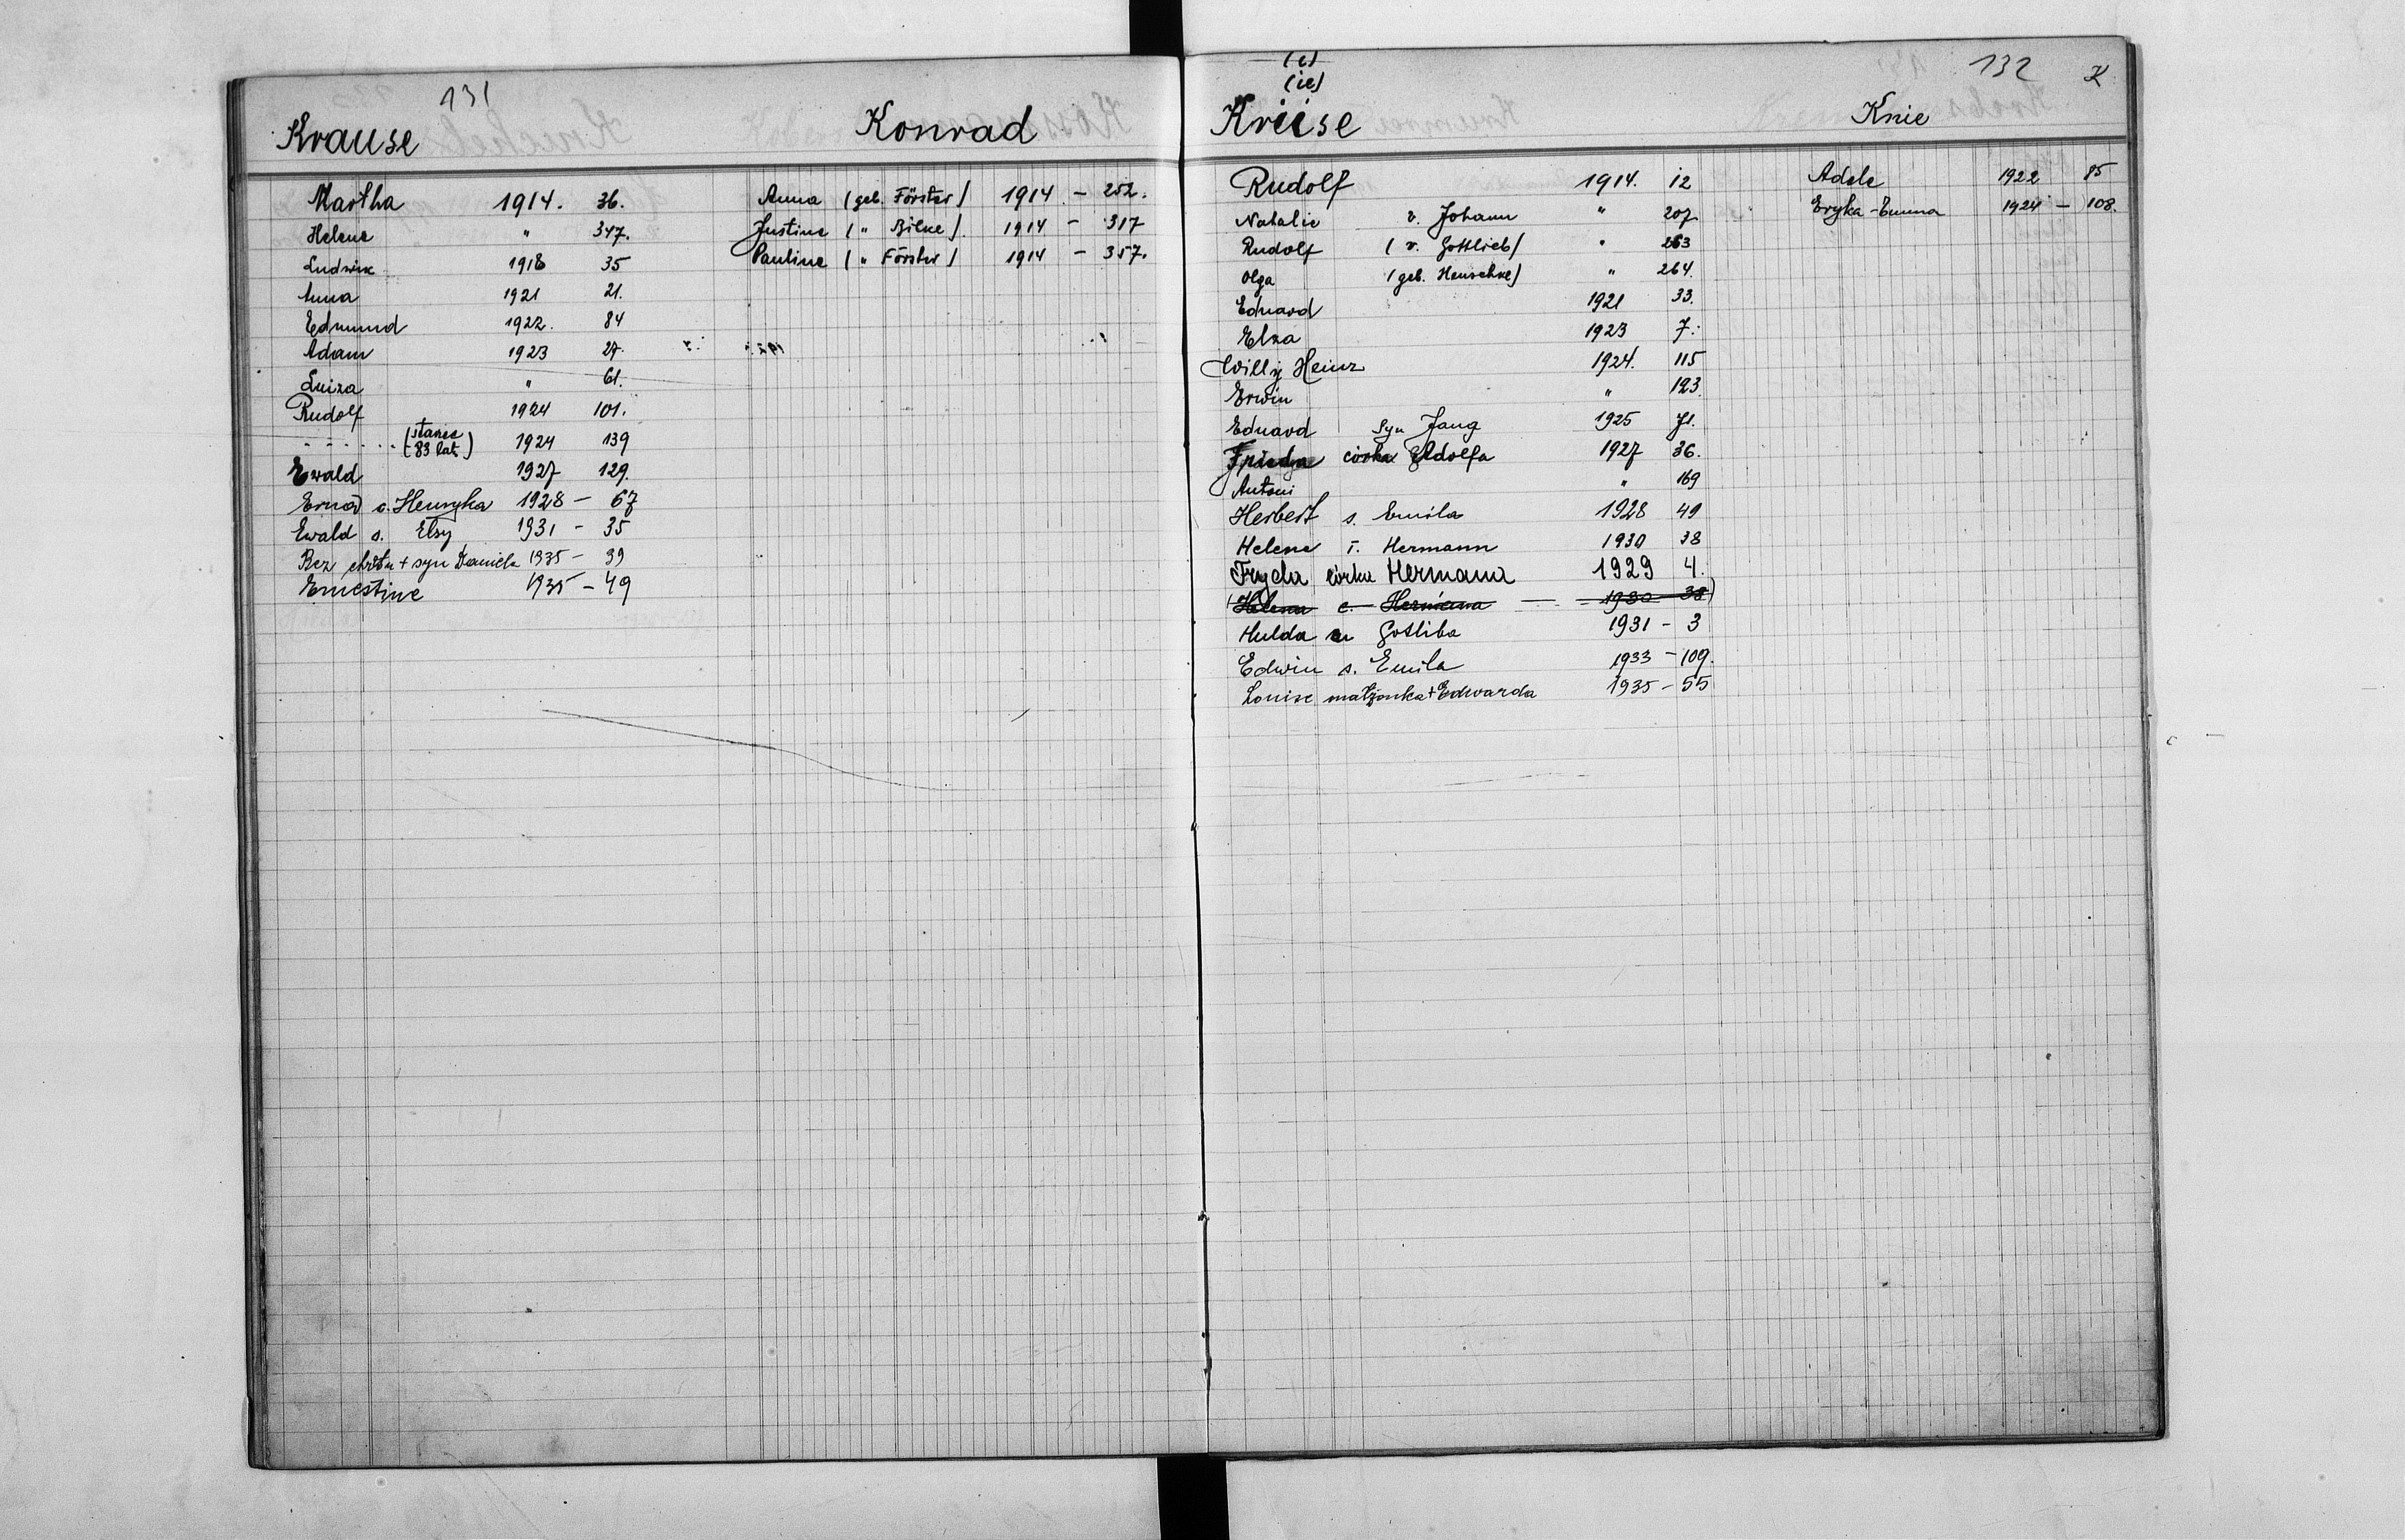 131
Krause
Martha 1914. 36.
Helene " 347.
Ludwik 1918 35
Anna 1921 21.
Edmund 1922. 84
Adam 1923 27.
Luiza " 61.
Rudolf 1924 101.
- - - - - . (starzec 83 lat.) 1924 139
Ewald 1927 129.
Erna c. Henryka 1928 - 67
Ewald s. Elzy 1931 - 35
Bez chrztu + syn Daniela 1935 - 39
Ernestine 1935 - 49
Konrad
Anna (geb. Förster) 1914 - 252.
Justine ( " Bilke) 1914 - 317
Pauline ( " Förster) 1914 - 357.
132 K
(i)
(ie)
Kriise
Rudolf 1914. 12
Natalie v. Johann " 207
Rudolf (v. Gottlieb) " 263
Olga (geb. Henschke) " 264.
Eduard 1921 33.
Elza 1923 7.
Willy Heinz 1924. 115
Erwin " 123.
Eduard syn Jana 1925 71.
Frieda córka Adolfa 1927 36.
Antoni " 169
Herbert s. Emila 1928 49
Helene T. Hermann 1930 38
Fryda córka Hermana 1929 4.
(Helena c. Hermana 1930 38)
Hulda Gotliba 1931 - 3
Edwin s. Emila 1933 - 109.
Louise małżonka + Edwarda 1935 - 55
Knie
Adele 1922 85
Eryka-Emma 1924 - 108.